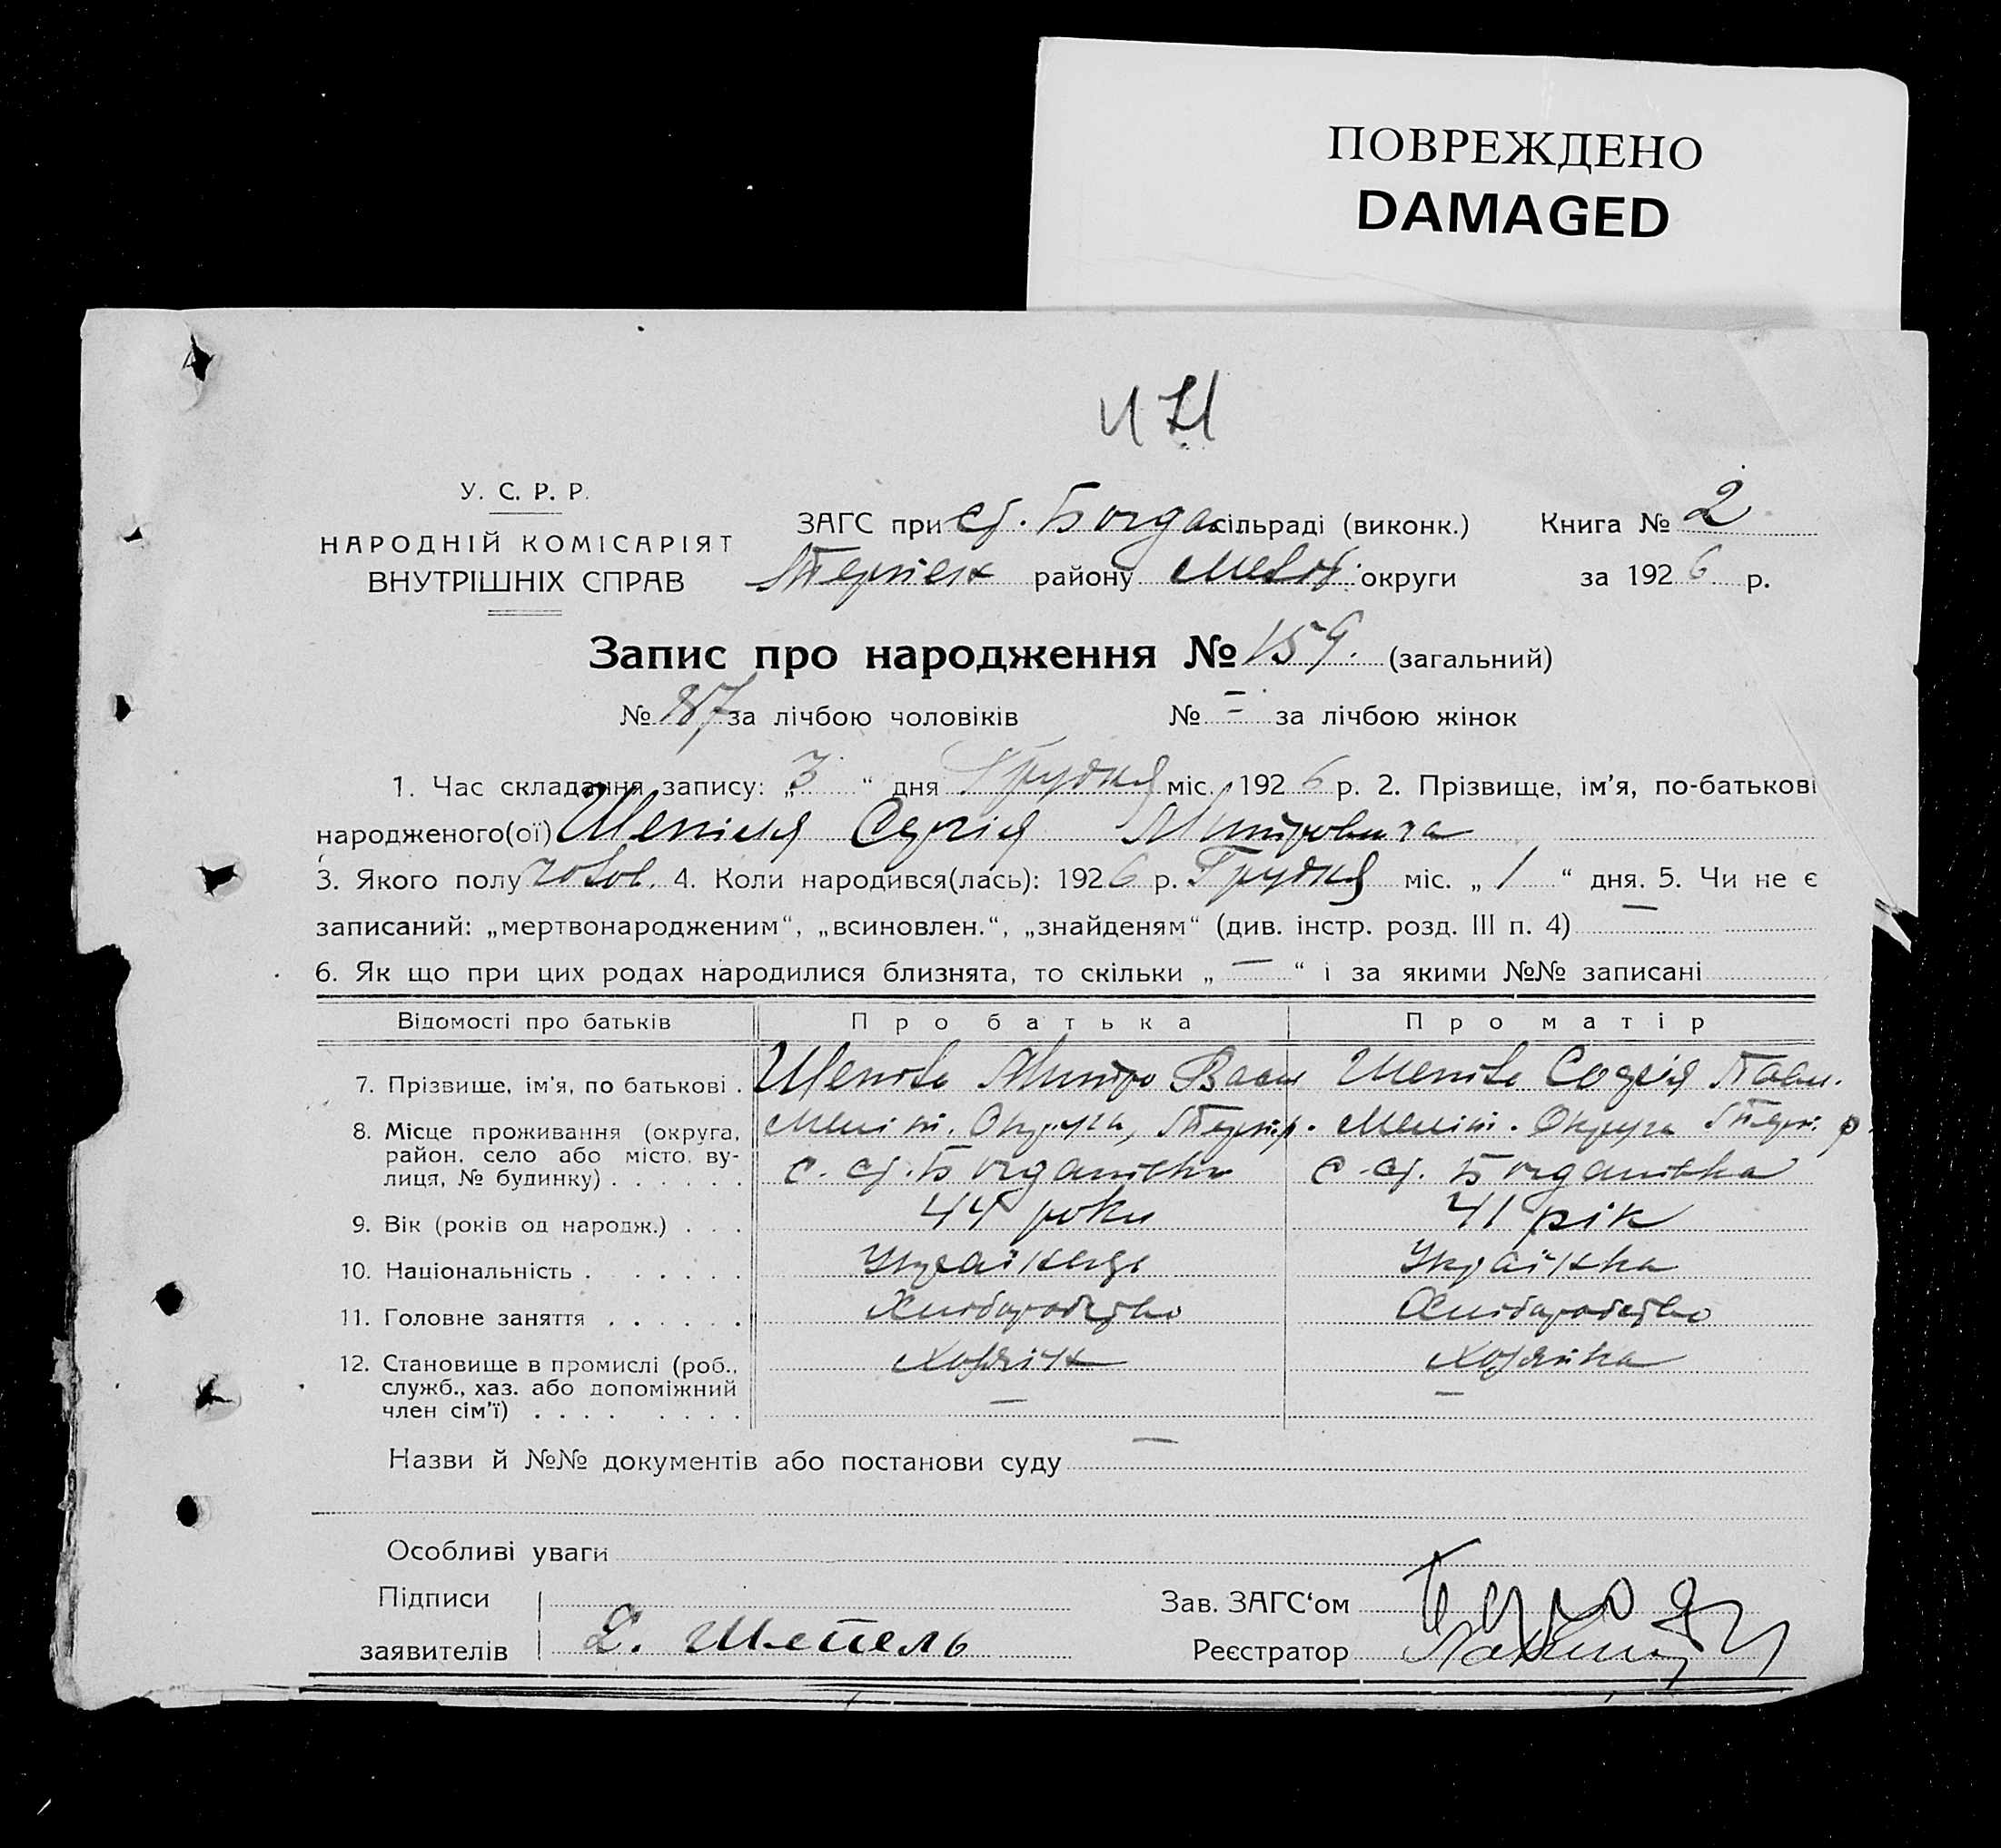 ПОВРЕЖДЕНО
DAMAGED
У. С. Р. Р.
НАРОДНІЙ КОМІСАРІЯТ
ВНУТРІШНІХ СПРАВ
ЗАГС при сільраді (виконк.) Книга № 2
району округи за 1926 р.
Запис про народження № 159. (загальний)
№ 87 за лічбою чоловіків № – за лічбою жінок
1. Час складання запису: „3“ дня Грудня міс. 1926 р. 2. Прізвище, ім'я, по-батькові
народженого(ої)
3. Якого полу чолов. 4. Коли народився(лась): 1926 р. Грудня міс. „1“ дня. 5. Чи не є
записаний: „мертвонародженим“, „всиновлен.“, „знайденям“ (див. інстр. розд. III п. 4) —
6. Як що при цих родах народилися близнята, то скільки „—“ і за якими №№ записані
Відомості про батьків Про батька Про матір
7. Прізвище, ім'я, по батькові . Шепіль Митро Васи Шепіль Павл.
8. Місце проживання (округа, Меліт. Округа, Меліт. Округа
район, село або місто, ву- с. Богданівка с. Богданівка
лиця, № будинку) . . . . . .
9. Вік (років од народж.) . . . 44 роки 41 рік
10. Національність . . . . . . . Українець Українка
11. Головне заняття . . . . . . Хліборобство Хліборобство
12. Становище в промислі (роб., Хозяїн Хозяйка
служб., хаз. або допоміжний — —
член сім'ї) . . . . . . . .
Назви й №№ документів або постанови суду —
Особливі уваги
Підписи Зав. ЗАГС‘ом
заявителів Шепель Реєстратор